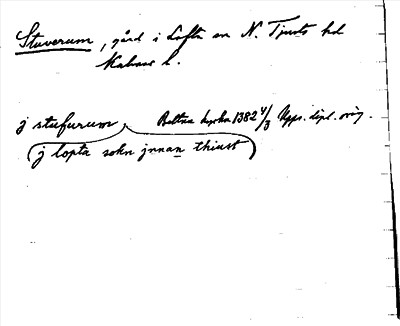 Stuverum, gård i Lofta sn N. Tjusts hd
Kalmar l.
j stufurum, Botna kyrka 1382 4/3 Upps. dipl. orig.
(j lopta sokn jnnan thiust)